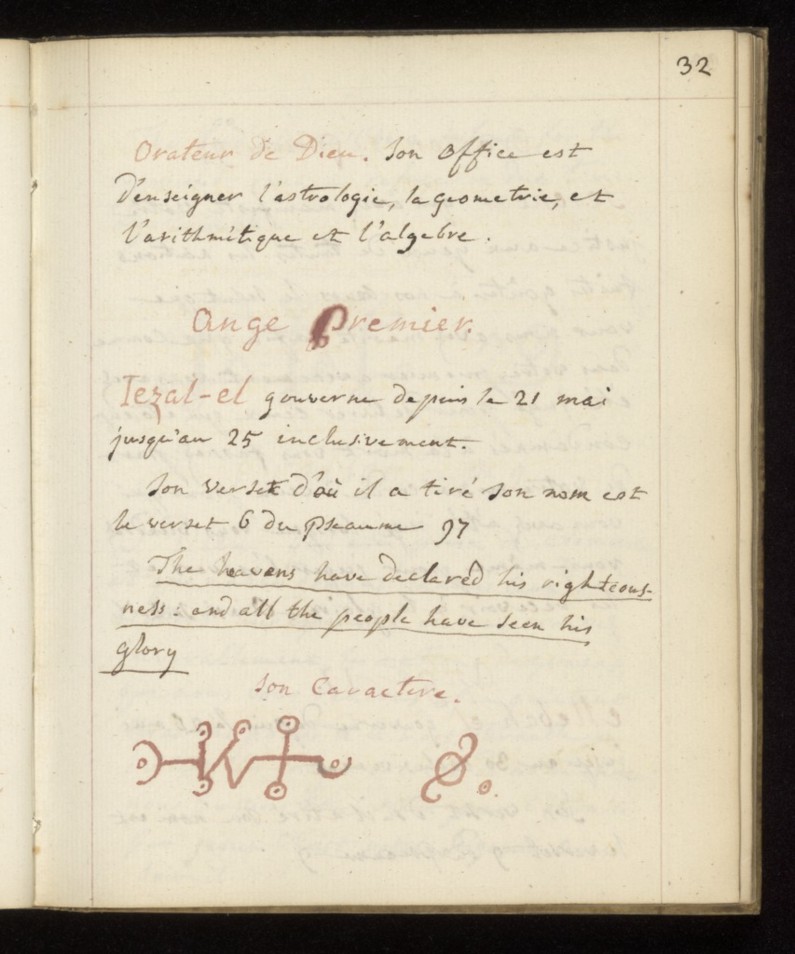 32
Orateur de Dieu. Son office est
d'enseigner l'astrologie, la geometrie, et
l'arithmétique et l'algebre.
Ange Premier.
Iezal-el gouverne depuis le 21 mai
jusqu'au 25 inclusivement.
Son verset d'où il a tiré son nom est
le verset 6 du Pseaume 97
The heavens have declared his righteous-
ness: and all the people have seen his
glory
Son Caractere.